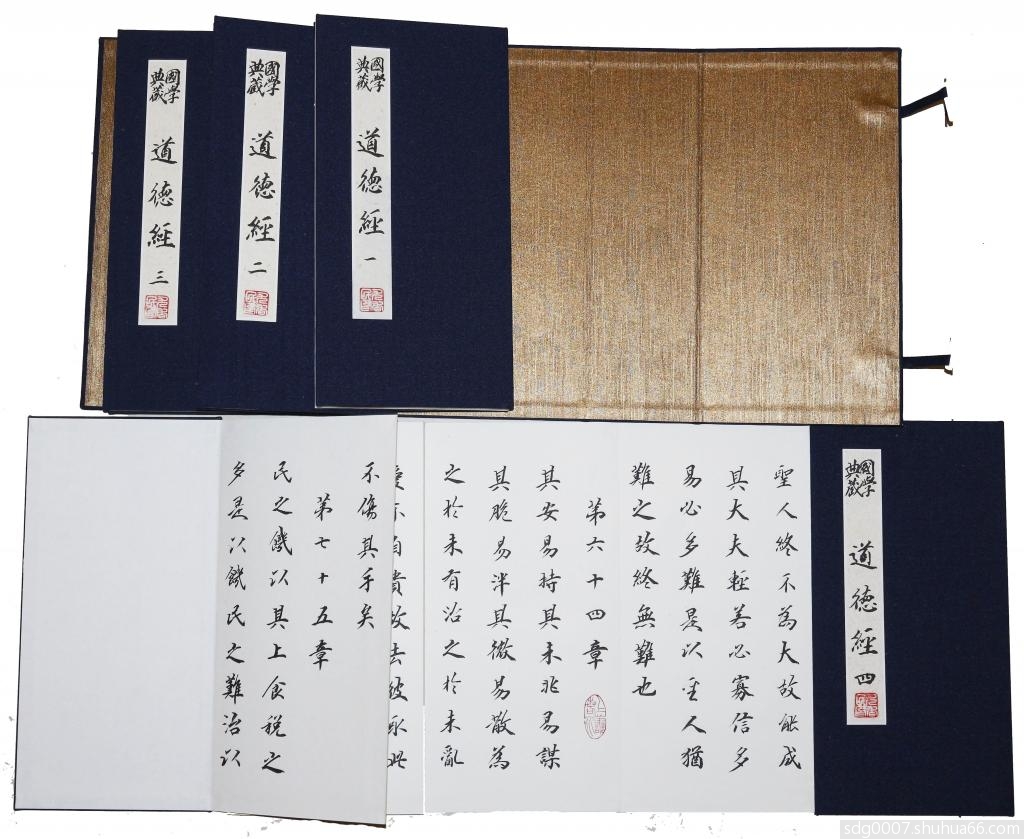 國學
典藏
道德經 一
國學
典藏
道德經 二
國學
典藏
道德經 三
國學
典藏
道德經 四
聖人終不為大故能成
其大夫輕善必寡信多
易必多難是以聖人猶
難之故終無難也
第六十四章
其安易持其未兆易謀
其脆易泮其微易散為
之於未有治之於未亂
愛不自貴故去彼取此
不傷其手矣
第七十五章
民之饑以其上食稅之
多是以饑民之難治以
sdg0007.shuhua66.com